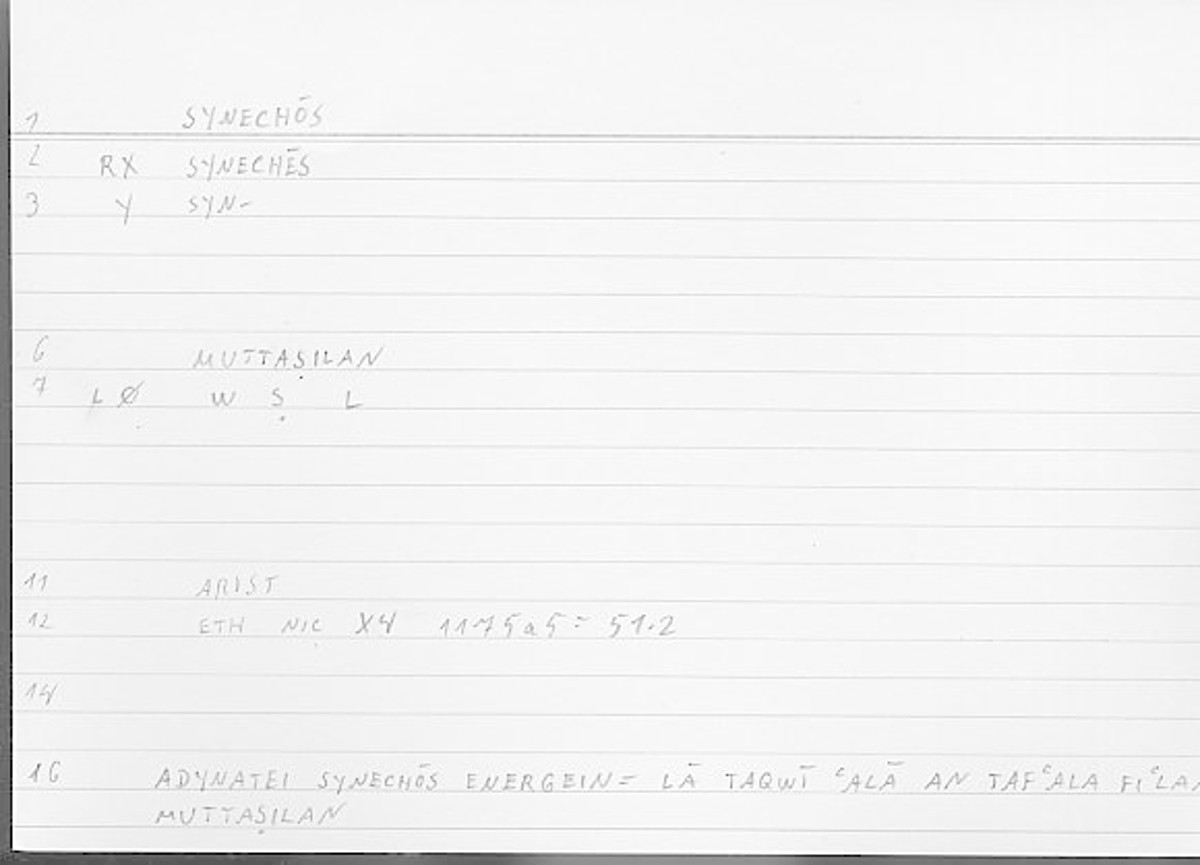 1 SYNECHŌS
2 RX SYNECHĒS
3 Y SYN-
6 MUTTAṢILAN
7 Ø W Ṣ L
11 ARIST
12 ETH NIC X4 1175a5 = 51.2
14
16 ADYNATEI SYNECHŌS ENERGEIN = LĀ TAQWĪ ʿALĀ AN TAFʿALA FIʿLAN
MUTTAṢILAN